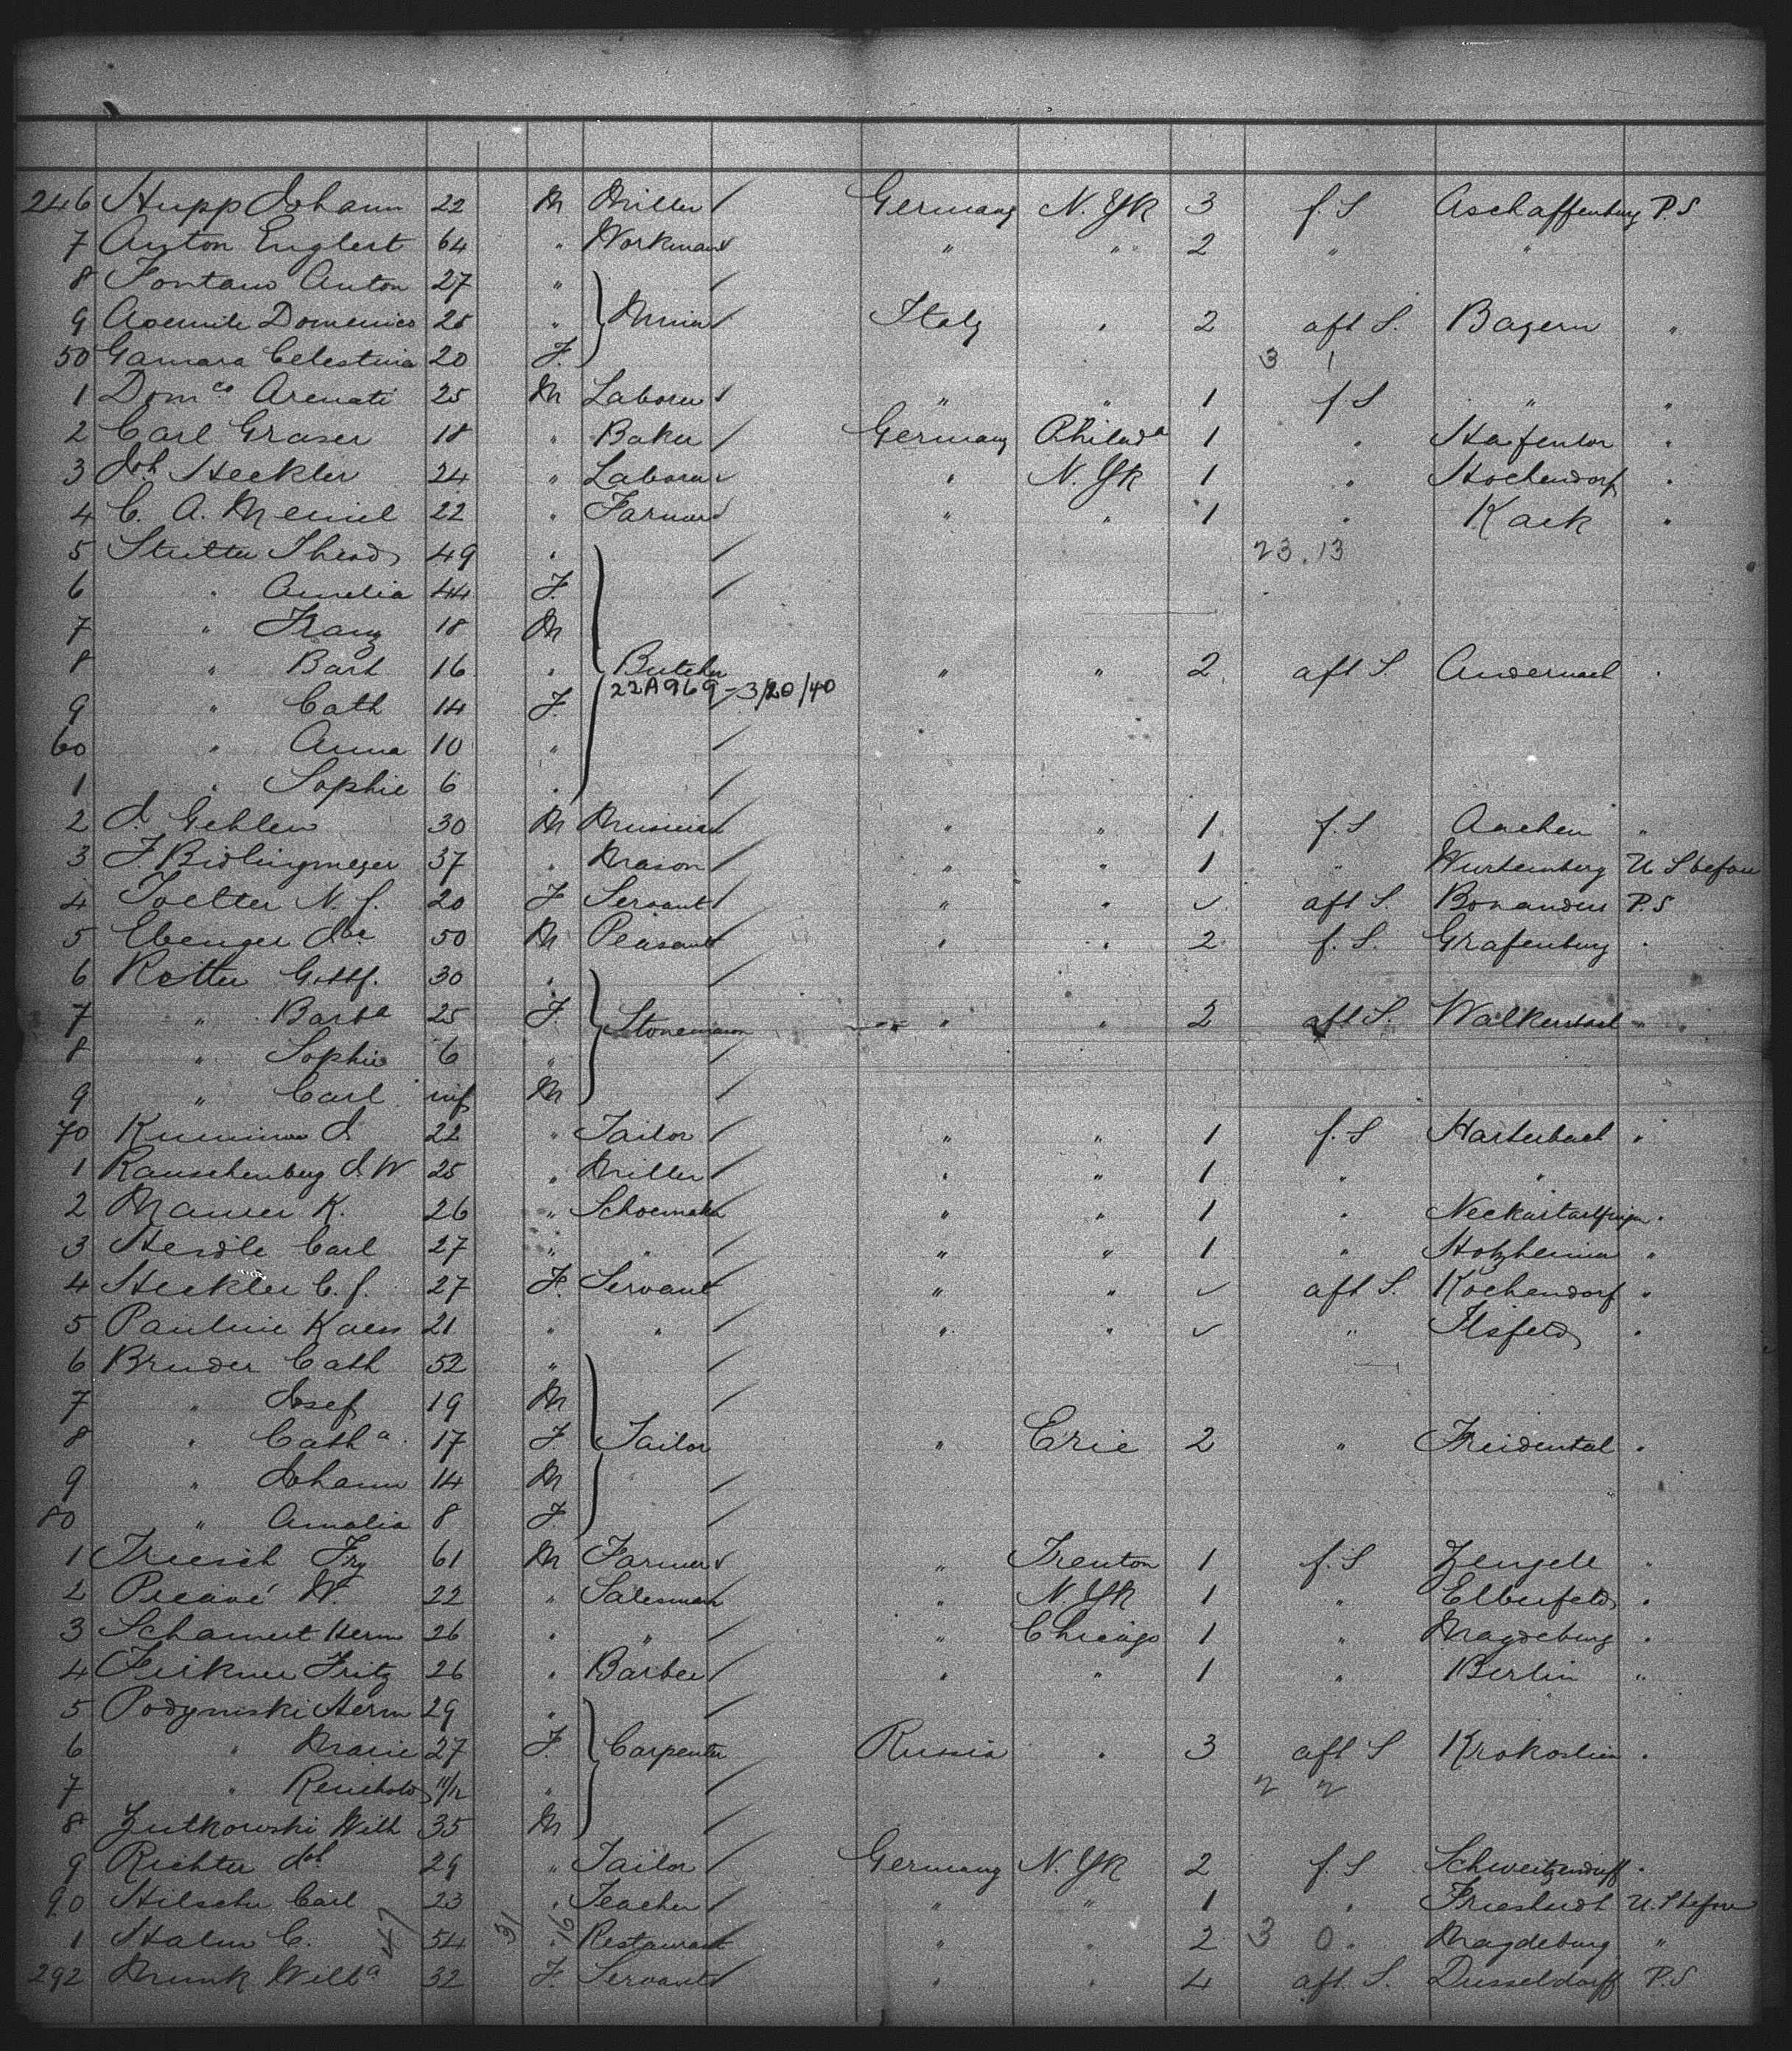 246 Hupp Johann 22 M Miller / Germany N. Yk 3 f. S Aschaffenburg P. S
7 Anton Englert 64 " Workman " " 2 " "
8 Fontano Anton 27 " /
9 Domenico 25 " } / Italy " 2 aft S. Bayern "
50 Gamara Celestina 20 F. 3 1
1 Dom co Arenati 25 M Laborer " " 1 f S " "
2 Carl Graser 18 " Baker / Germany Philad a 1 " "
3 Joh Heckler 24 " Laborer " N. Yk 1 " "
4 C. A. 22 " Farmer " " 1 " "
5 49 " / 23 . 13
6 " Amelia 44 F. /
7 " Franz 18 M
8 " Barb 16 " Butcher " " 2 aft S. Andernach "
22A969 - 3/20/40
9 " Cath 14 F.
60 " Anna 10 " /
1 " Sophie 6 " /
2 J. Gehlen 30 M Musician " " 1 f. S Aachen "
3 F. Bidlingmeyer 37 " Mason / " " 1 " Wurtemberg U. S before
4 N. f. 20 F Servant / " " ✓ aft S. P. S
5 50 M Peasant " " 2 f. S. Grafenburg "
6 Rotter Gottf. 30 " /
7 " Barb a 25 F. Stonemason " " 2 aft S. "
8 " Sophie 6 " /
9 " Carl inf M /
70 J. 22 " Tailor / " " 1 f. S "
1 Rauschenberg J. W 25 " Miller / " " 1 " "
2 Maurer K. 26 " Schoemaker " " 1 " "
3 Carl 27 " " / " " 1 " "
4 Heckler C. f. 27 F. Servant " " ✓ aft S. Kochendorf "
5 Pauline Kaess 21 " " / " " ✓ " Ilsfeld "
6 Bruder Cath 52 " /
7 " Josef 19 M /
8 " Cath a 17 F. Tailor " Erie 2 " Freidental "
9 " Johann 14 M /
80 " Amalia 8 F. /
1 61 M Farmer " Trenton 1 f. S "
2 W. 22 " Salesman " N. Yk 1 " Elberfeld "
3 Herm 26 " " " Chicago 1 " Magdeburg "
4 Fritz 26 " Barber / " " 1 " Berlin "
5 Podymski Herm 29 " /
6 " Marie 27 F. Carpenter Russia " 3 aft S "
7 " Reinhold 11/12 " / 2 2
8 Zutkowski Wilh 35 M /
9 Richter Joh 29 " Tailor / Germany N. Yk 2 f S "
90 Carl 23 " Teacher / " " 1 " U. S before
1 C. 47 54 31 " 16 Restaurant " " 2 3 0 " Magdeburg "
292 Munk Wilh a 32 F. Servant " " 4 aft. S. Dusseldorff P. S